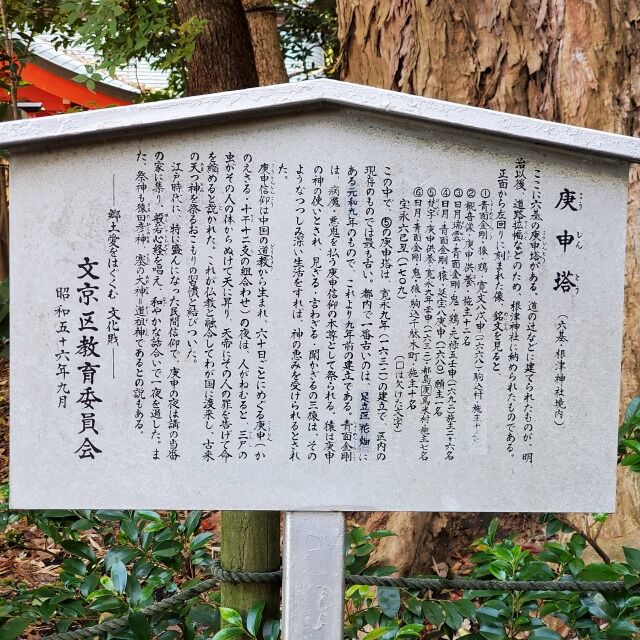 庚申塔 (六基 根津神社境内)
こうしんとう
ここに六基の庚申塔がある。道の辻などに建てられたものが、明
治以後、道路拡幅などのため、根津神社に納められたものである。
正面から左回りに刻まれた像、銘文を見ると、
① 青面金剛・猿・鶏、寛文八戊申(一六六八)駒込村施主十三名
② 観音像・庚申供養、施主十二名
③ 日月瑞雲・青面金剛・鬼・鶏・
④ 日月・青面金剛・猿、延宝八庚申(一六八〇)願主一名
⑤ 梵字・庚申供養、寛永九年壬申(一六三二)
⑥ 日月・青面金剛・鬼・猿、駒込千駄木町、施主十名
宝永六己丑(一七〇九)
(□は欠けた文字)
この中で、⑤の庚申塔は、寛永九年(一六三二)の建立で、区内の
現存のものでは最も古い。都内で一番古いのは、足立区花畑に
ある元和九年のもので、これより九年前の建立である。青面金剛
は、病魔・悪鬼を払う庚申信仰の本尊として祭られる。猿は庚申
の神の使いとされ、見ざる・言わざる・聞かざるの三猿は、その
ようなつつしみ深い生活をすれば、神の恵みを受けられるとされ
た。
庚申信仰は中国の道教から生まれ、六十日ごとにめぐる庚申(か
のえさる・十干十二支の組合わせ)の夜は、人がねむると、三尸の
虫がその人の体からぬけて天に昇り、天帝にその人の罪を告げて命
を縮めると説かれた。これが仏教と融合してわが国に渡来し、古来
の天つ神を祭るおこもりの習慣と結びついた。
江戸時代に、特に盛んになった民間信仰で、庚申の夜は講の当番
の家に集り、般若心経を唱え、和やかな話合いで一夜を過した。ま
た、祭神も猿田彦神・塞の大神=道祖神であるとの説もある。
――郷土愛をはぐくむ文化財――
文京区教育委員会
昭和五十六年九月